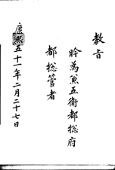 敎旨
昑爲兼五衛都摠府
都摠管者
康熙五十一年二月二十七日